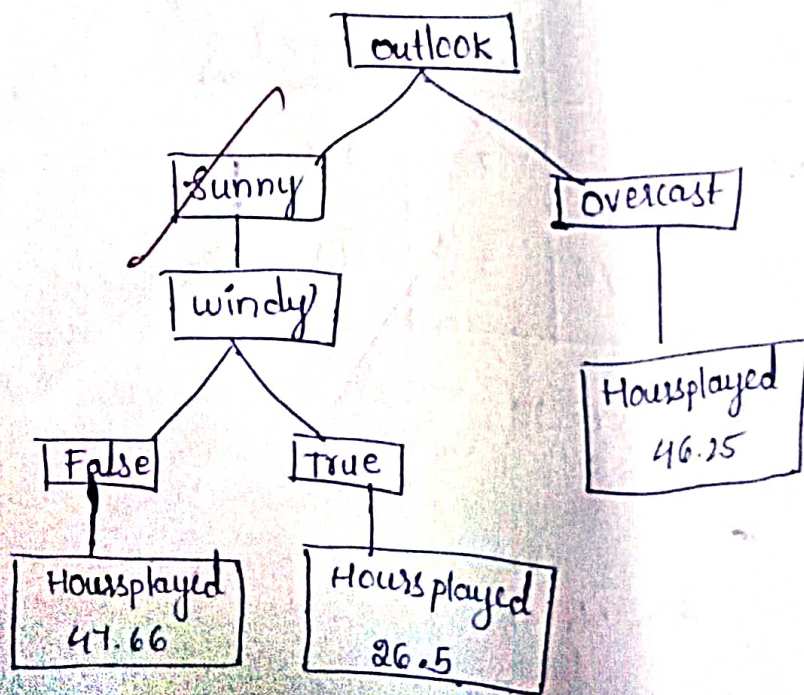 outlook
Sunny
overcast
windy
Hoursplayed
46.25
False
True
Hoursplayed
47.66
Hours played
26.5